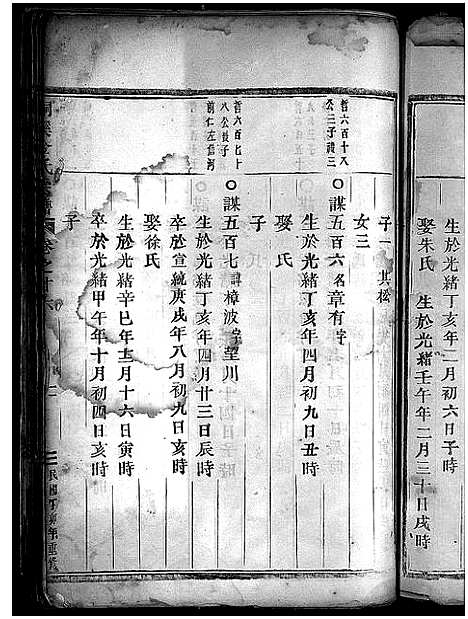 生於光緒丁亥年二月初六日子時
娶朱氏　生於光緒壬午年二月三十日戌時
子一　其松
女三
哲六百十八
公三子禮三
○謀五百六名章有字
生於光緒丁亥年四月初九日丑時
娶　氏
子
哲六百七十
八公後子
前仁左信河
○謀五百七諱樟波字望川
生於光緒丁亥年四月廿三日辰時
卒於宣統庚戌年八月初九日亥時
娶徐氏
生於光緒辛巳年十二月十六日寅時
卒於光緒甲午年十月初四日亥時
子
卷之十六